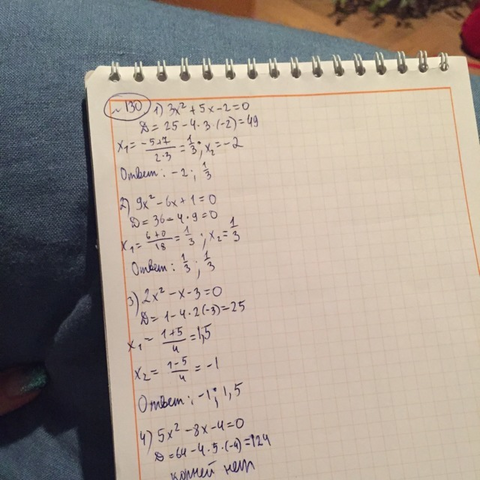 №130 1) 3x² + 5x - 2 = 0
D = 25 - 4·3·(-2) = 49
x₁ = (-5+7)/(2·3) = 1/3; x₂ = -2
Ответ: -2; 1/3
2) 9x² - 6x + 1 = 0
D = 36 - 4·9 = 0
x₁ = (6+0)/18 = 1/3; x₂ = 1/3
Ответ: 1/3; 1/3
3) 2x² - x - 3 = 0
D = 1 - 4·2(-3) = 25
x₁ = (1+5)/4 = 1,5
x₂ = (1-5)/4 = -1
Ответ: -1; 1,5
4) 5x² - 8x - 4 = 0
D = 64 - 4·5·(-4) = 124
корней нет